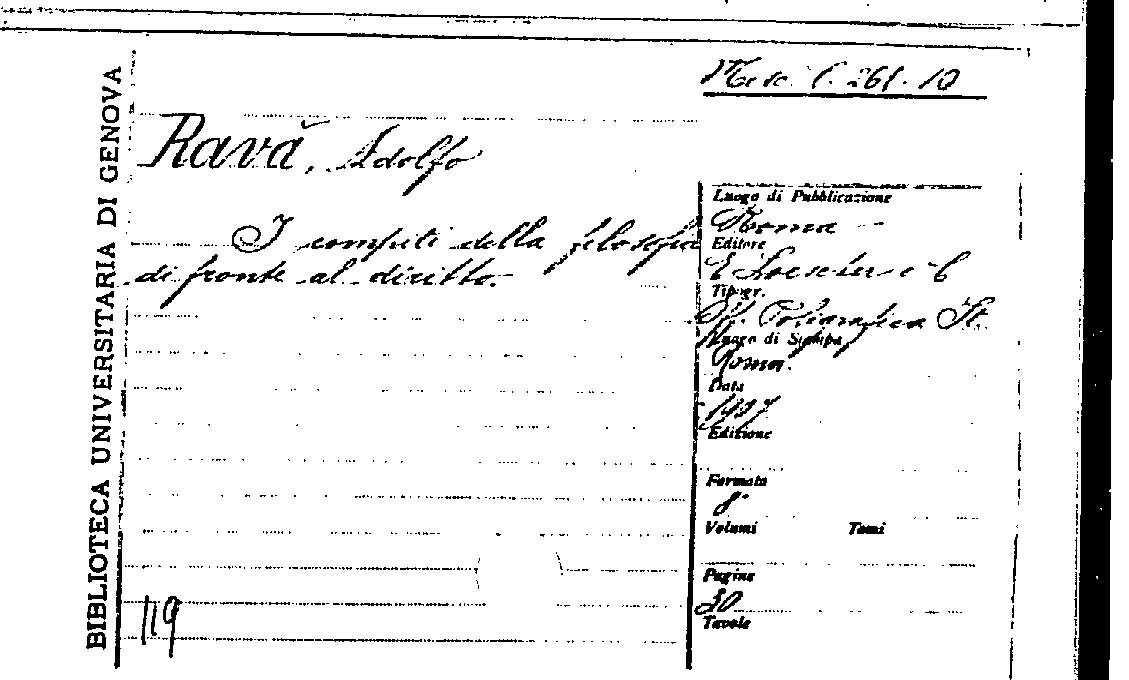 BIBLIOTECA UNIVERSITARIA DI GENOVA
Misc. C. 261. 10
Ravà, Adolfo
I compiti della filosofia
di fronte al diritto.
Luogo di Pubblicazione
Roma
Editore
E Loescher e C
Tipogr.
Poligrafica It.
Luogo di Stampa
Roma.
Data
1907
Edizione
Formato
8°
Volumi Tomi
Pagine
30
Tavole
119